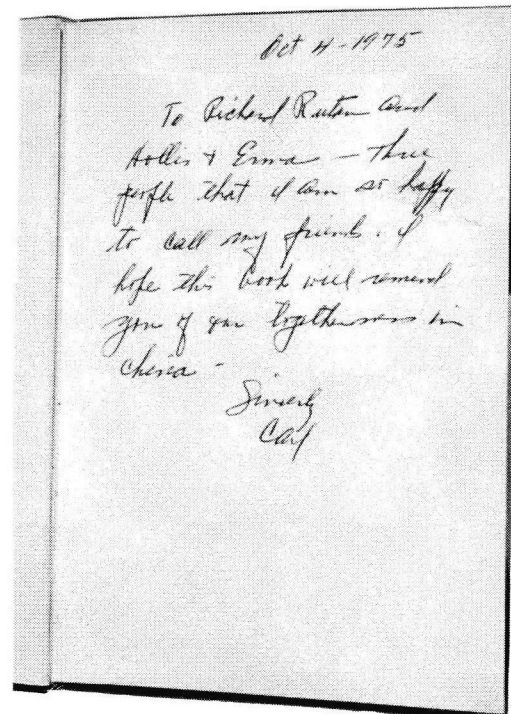 Oct 4-1975
To Richard Rutan and
Hollis + Erma - three
people that I am so happy
to call my friends. I
hope this book will remind
you of our togetherness in
China -
Sincerely
Carl